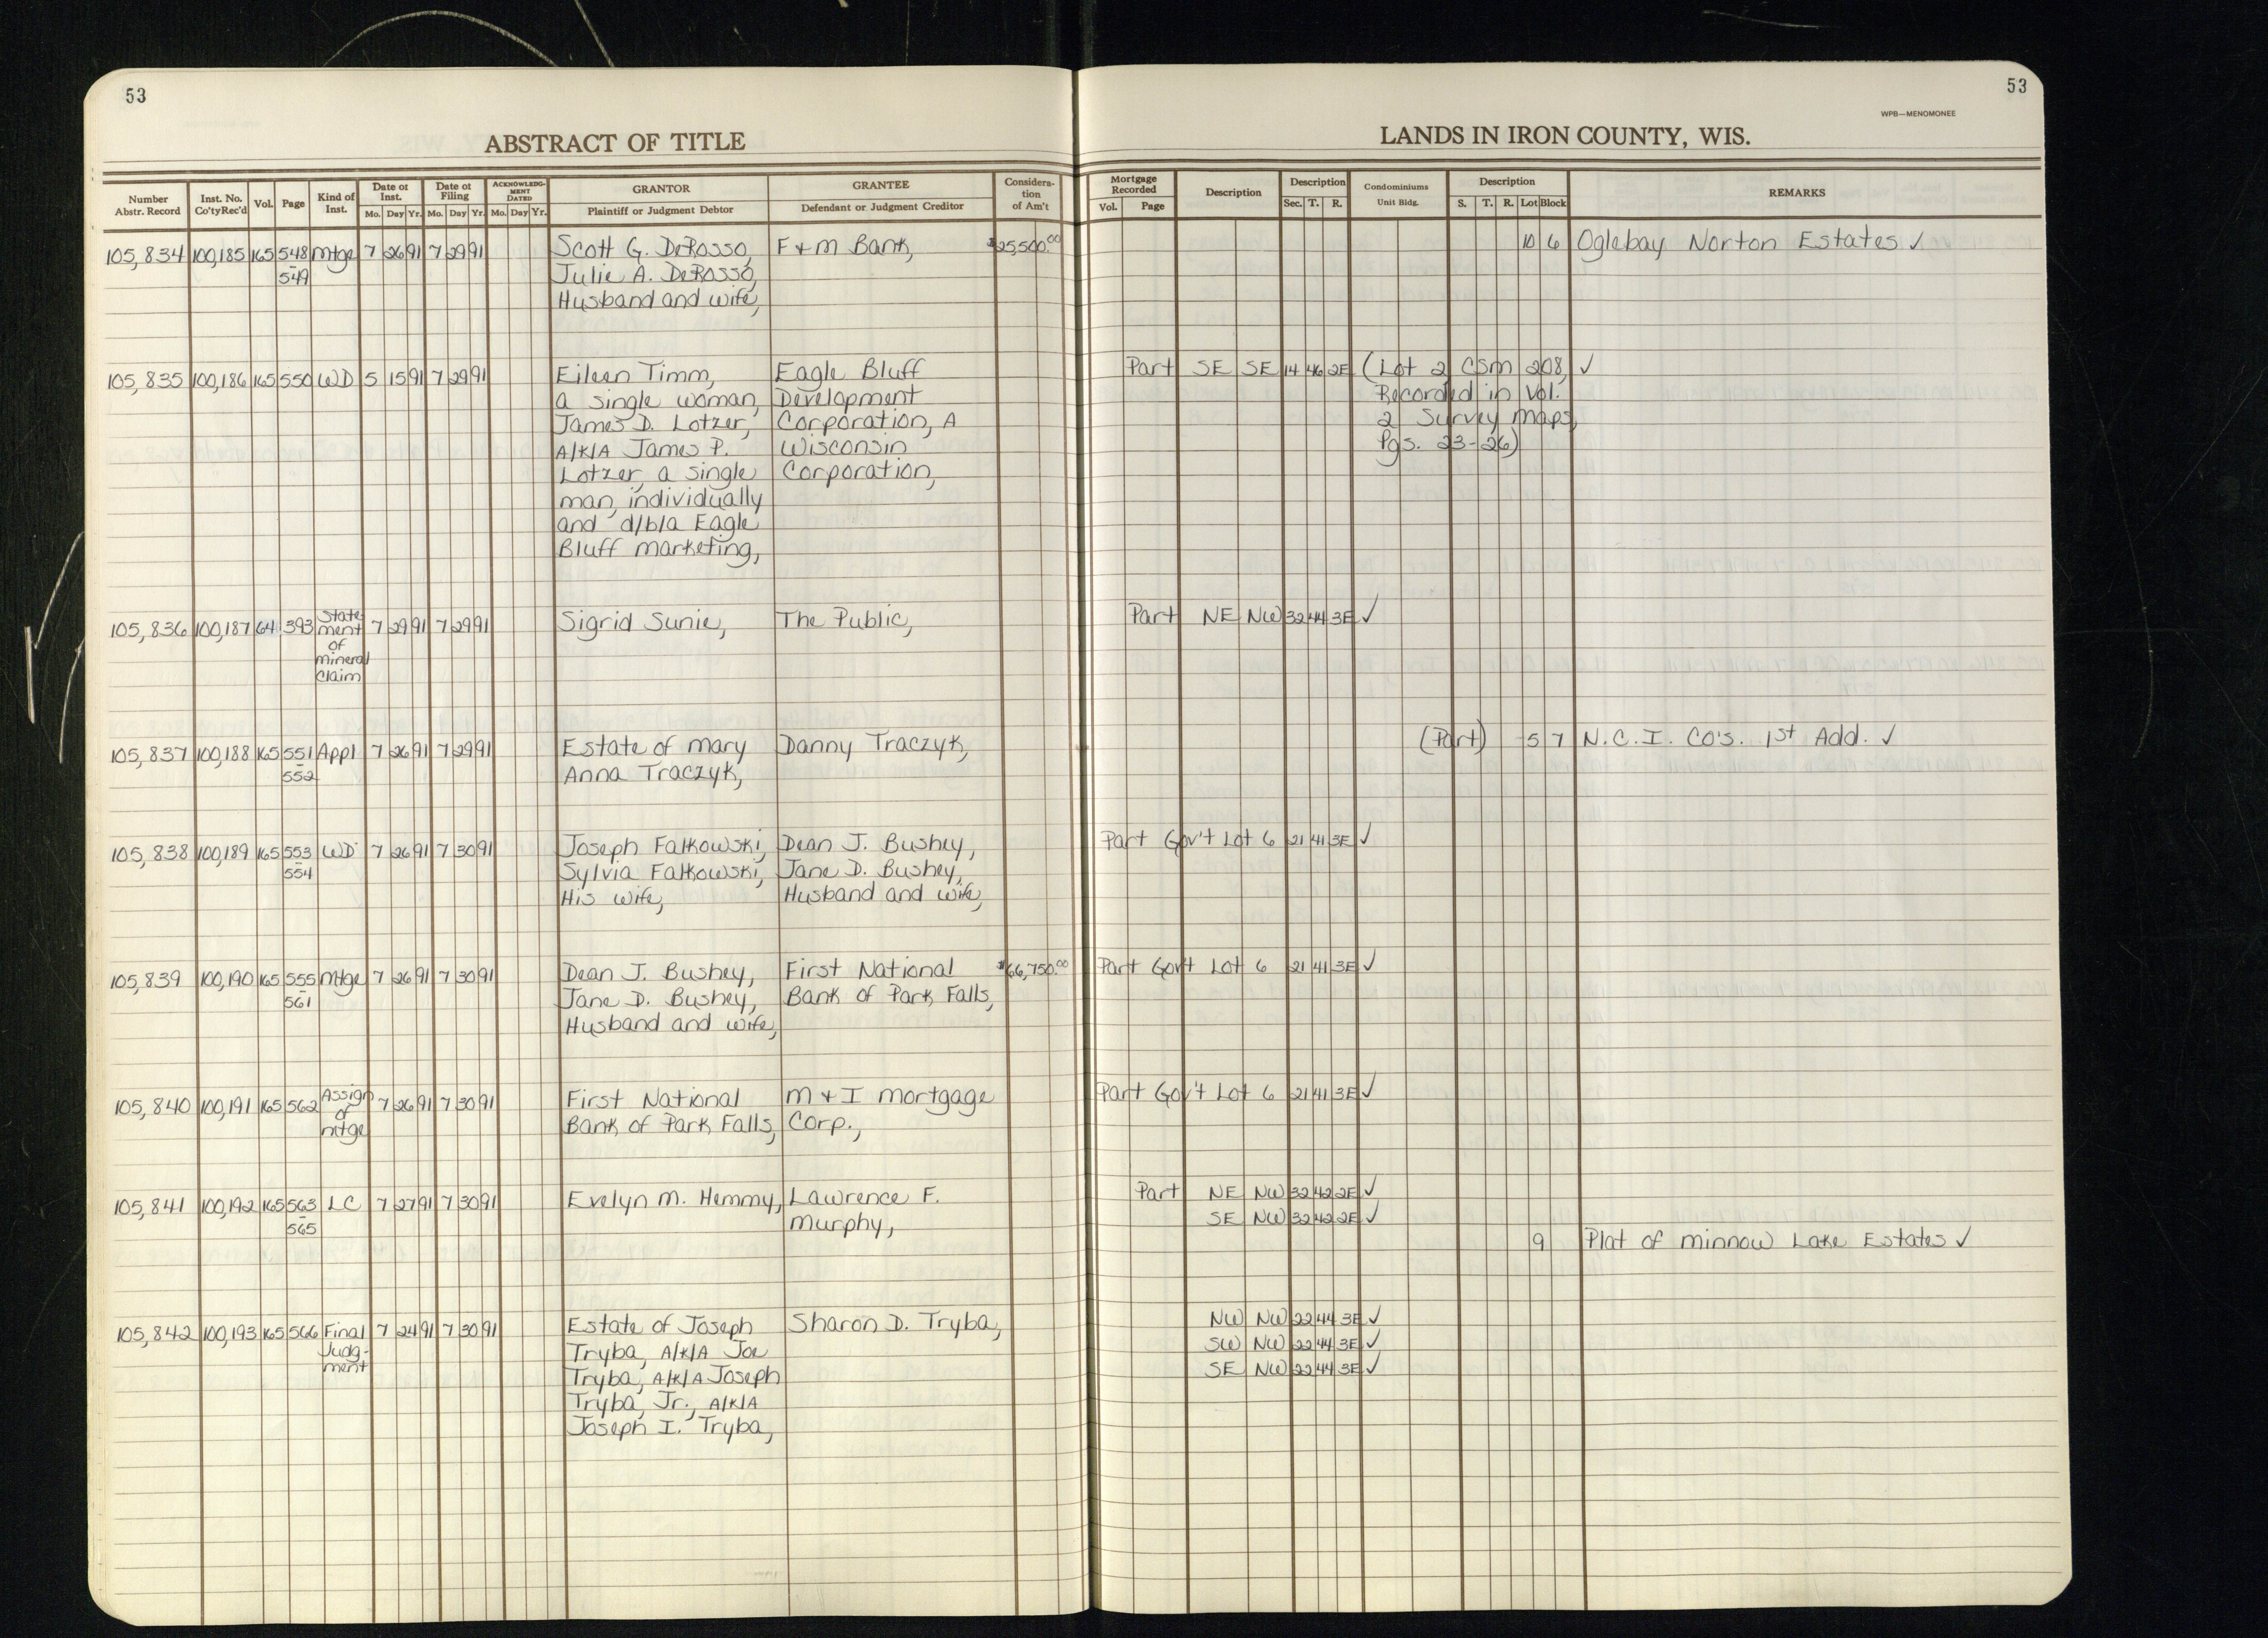 53
53
WPB—MENOMONEE
ABSTRACT OF TITLE
LANDS IN IRON COUNTY, WIS.
Number Abstr. Record | Inst. No. Co'ty Rec'd | Vol. | Page | Kind of Inst. | Date of Inst. Mo. Day Yr. | Date of Filing Mo. Day Yr. | ACKNOWLEDGMENT DATED Mo. Day Yr. | GRANTOR Plaintiff or Judgment Debtor | GRANTEE Defendant or Judgment Creditor | Consideration of Am't | Mortgage Recorded Vol. Page | Description | Description Sec. T. R. | Condominiums Unit Bldg. | Description S. T. R. Lot Block | REMARKS
105,834 100,185 165 548 Mtge 7 26 91 7 29 91 Scott G. DeRosso, F & M Bank, $25,500.00 10 6 Oglebay Norton Estates ✓
- 549 Julie A. DeRosso,
Husband and wife,
105,835 100,186 165 550 WD 5 15 91 7 29 91 Eileen Timm, Eagle Bluff Part SE SE 14 46 2E (Lot 2 CSM 208, ✓
a single woman, Development Recorded in Vol.
James D. Lotzer, Corporation, A 2 Survey Maps,
A/K/A James P. Wisconsin Pgs. 23-26)
Lotzer, a single Corporation,
man, individually
and d/b/a Eagle
Bluff Marketing,
105,836 100,187 64 393 State- 7 29 91 7 29 91 Sigrid Sunie, The Public, Part NE NW 32 44 3E ✓
ment
of
Mineral
Claim
105,837 100,188 165 551 Appl 7 26 91 7 29 91 Estate of Mary Danny Traczyk, (Part) 5 7 N.C.I. CO'S. 1st Add. ✓
- 552 Anna Traczyk,
105,838 100,189 165 553 WD 7 26 91 7 30 91 Joseph Falkowski, Dean J. Bushey, Part Gov't Lot 6 21 41 3E ✓
- 554 Sylvia Falkowski, Jane D. Bushey,
His wife, Husband and wife,
105,839 100,190 165 555 Mtge 7 26 91 7 30 91 Dean J. Bushey, First National $66,750.00 Part Gov't Lot 6 21 41 3E ✓
- 561 Jane D. Bushey, Bank of Park Falls,
Husband and wife,
105,840 100,191 165 562 Assign 7 26 91 7 30 91 First National M & I Mortgage Part Gov't Lot 6 21 41 3E ✓
of Bank of Park Falls, Corp.,
Mtge
105,841 100,192 165 563 LC 7 27 91 7 30 91 Evelyn M. Hemmy, Lawrence F. Part NE NW 32 42 2E ✓
- 565 Murphy, SE NW 32 42 2E ✓
9 Plat of Minnow Lake Estates ✓
105,842 100,193 165 566 Final 7 24 91 7 30 91 Estate of Joseph Sharon D. Tryba, NW NW 22 44 3E ✓
Judg- Tryba, A/K/A Joe SW NW 22 44 3E ✓
ment Tryba, A/K/A Joseph SE NW 22 44 3E ✓
Tryba, Jr., A/K/A
Joseph I. Tryba,